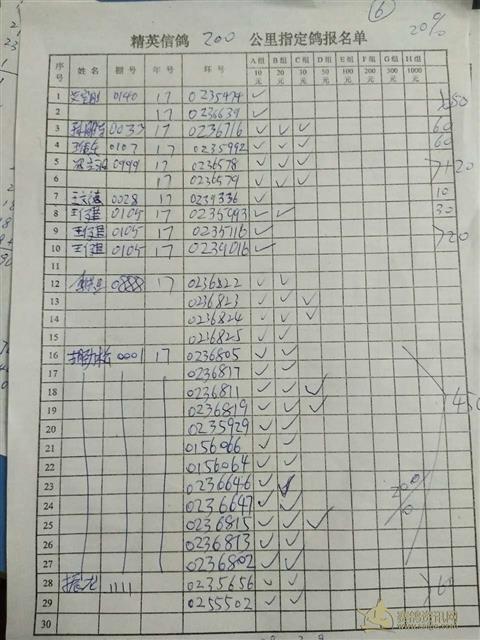 6
20%
精英信鸽 200 公里指定鸽报名单
序号 姓名 棚号 年号 环号 A组10元 B组20元 C组30元 D组50元 E组100元 F组200元 G组300元 H组1000元
1 0140 17 0235474 ✓
2 17 0236639 ✓
3 0033 17 0236716 ✓ ✓ ✓ 60
4 0107 17 0235992 ✓ ✓ ✓ 60
5 0999 17 0236578 ✓ ✓ ✓ 120
6 17 0236579 ✓ ✓ ✓
7 0028 17 0234336 ✓ 10
8 0105 17 0235093 ✓ ✓ 30
9 0105 17 0235116 ✓ 20
10 0105 17 0234016 ✓
11
12 17 0236822 ✓ ✓
13 0236823 ✓ ✓ ✓
14 0236824 ✓ ✓ ✓
15 0236825 ✓ ✓
16 0001 17 0236805 ✓ ✓
17 0236817 ✓ ✓
18 0236811 ✓ ✓ ✓
19 0236819 ✓ ✓ ✓ 450
20 0235929 ✓ ✓
21 0156066 ✓ ✓
22 0156064 ✓ ✓
23 0236646 ✓ ✓ 200
24 0236647 ✓ ✓
25 0236815 ✓ ✓ ✓
26 0236813 ✓ ✓
27 0236802 ✓ ✓
28 1111 0235656 ✓ ✓ 60
29 0255502 ✓ ✓
30